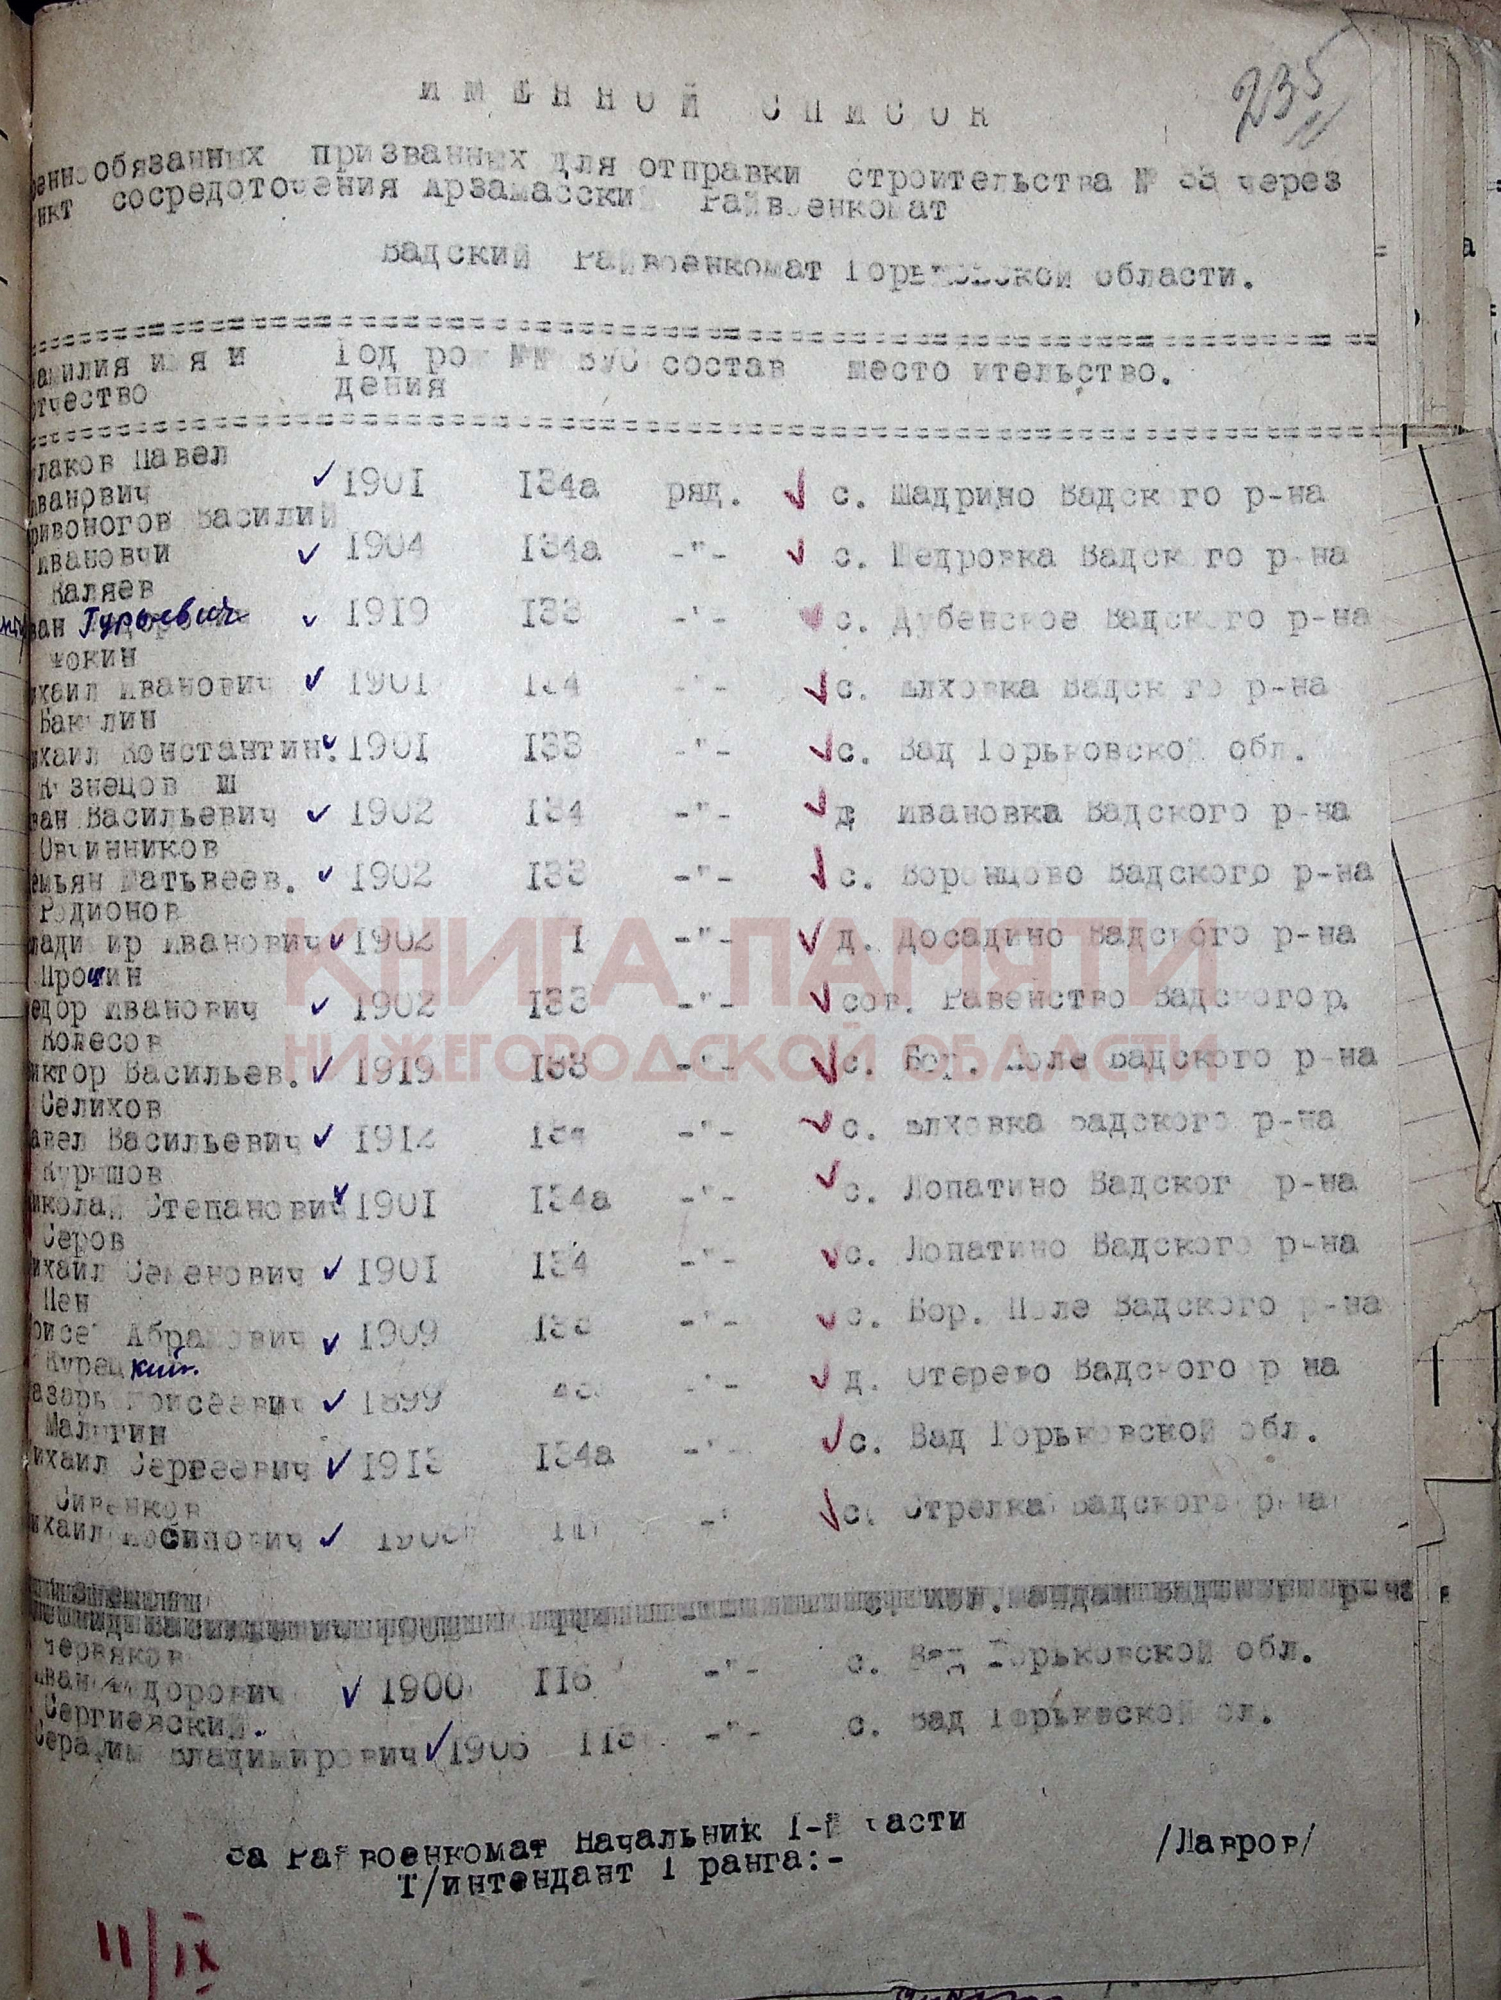 ИМЕННОЙ СПИСОК
235
еннообязанных призванных для отправки строительства № 33 через
нкт сосредоточения Арзамасский Райвоенкомат
Вадский Райвоенкомат Горьковской области.
амилия имя и Год рож №№ ВУС состав место ительство.
отчество дения
лаков Павел
Иванович 1901 134а ряд. с. Шадрино Вадского р-на
ривоногов Василий
Ивановчи 1904 134а -"- с. Шедровка Вадского р-на
Каляев
ван Гурьевич 1919 133 -"- с. Дубенское Вадского р-на
Фокин
ихаил Иванович 1901 134 -"- с. Елховка Вадского р-на
Бакулин
ихаил Константин. 1901 133 -"- с. Вад Горьковской обл.
Кузнецов Ш
ван Васильевич 1902 134 -"- д. Ивановка Вадского р-на
Овчинников
емьян Матьвеев. 1902 133 -"- с. Воронцово Вадского р-на
Родионов
ладимир Иванович 1902 1 -"- д. Досадино Вадского р-на
Прочин
едор Иванович 1902 133 -"- сов. Равенство Вадского р.
Колесов
иктор Васильев. 1919 133 -"- с. Бор. Поле Вадского р-на
Селихов
авел Васильевич 1912 134 -"- с. Елховка Вадского р-на
Курушов
иколай Степанович 1901 134а -"- с. Лопатино Вадског р-на
Серов
ихаил Семенович 1901 134 -"- с. Лопатино Вадского р-на
Цен
оисей Абрамович 1909 133 -"- с. Бор. Поле Вадского р-на
Курецкий
азарь Моисеевич 1899 -"- д. Отерево Вадского р на
Малыгин
ихаил Сергеевич 1913 134а -"- с. Вад Горьковской обл.
Сивенков
ихаил Иосипович -" с. Стрелка Вадского р-на
Червяков
Иван Федорович 1900 116 -"- с. Вад Горьковской обл.
Сергиевский
Серафим Владимирович 1906 -"- с. Вад Горьковской ол.
За Райвоенкомат Начальник 1-й части
Т/интендант 1 ранга:- /Лавров/
11/IX
КНИГА ПАМЯТИ
НИЖЕГОРОДСКОЙ ОБЛАСТИ